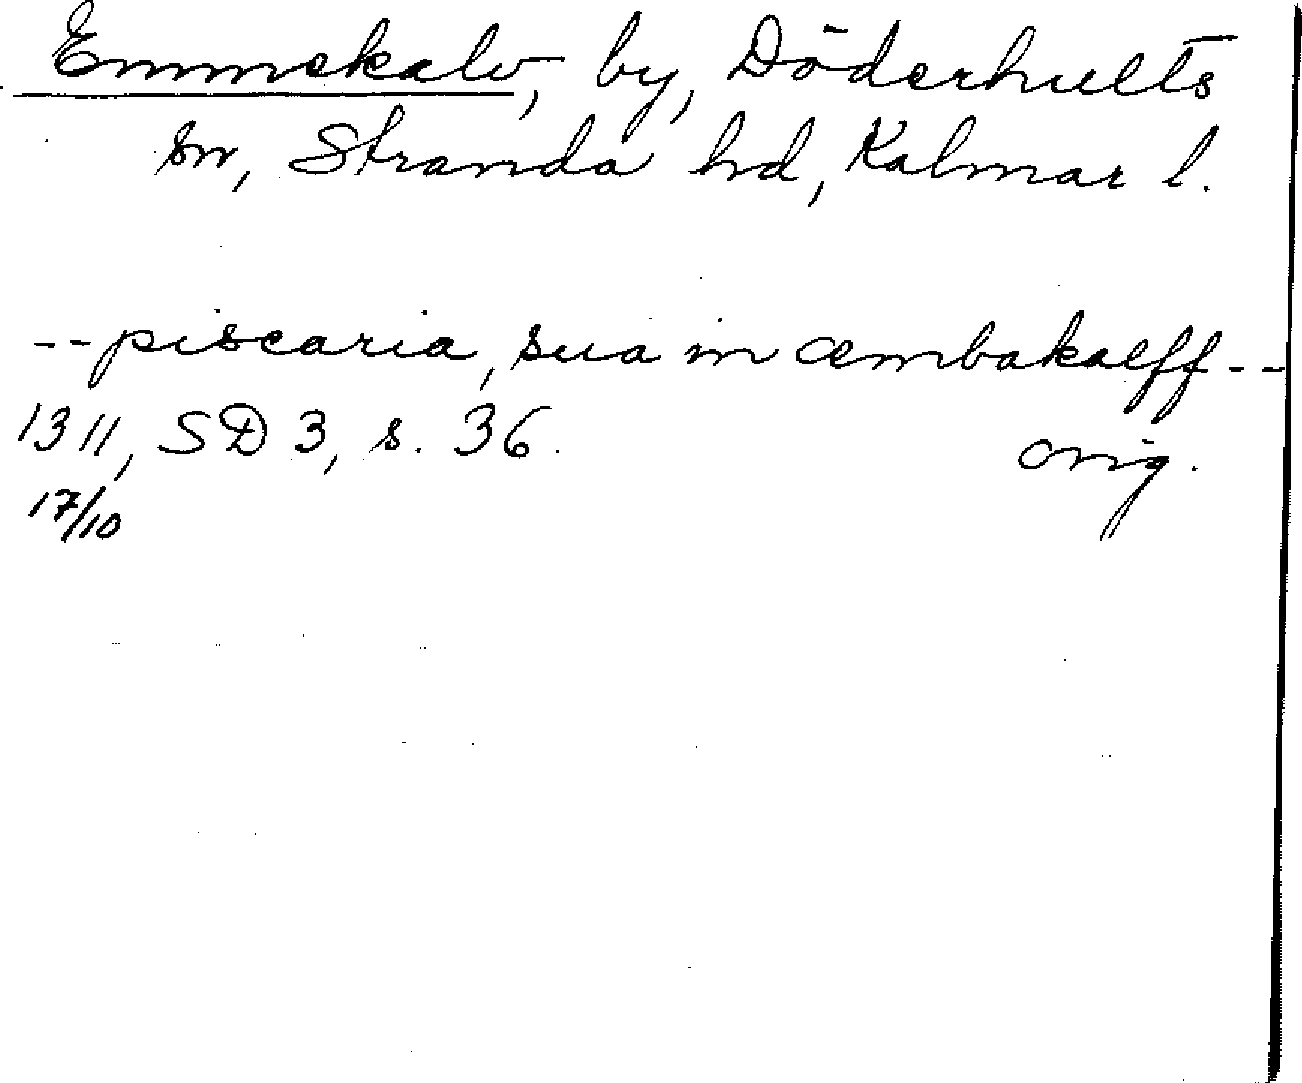 Emmekalv, by, Döderhults
sn, Stranda hd, Kalmar l.
-- piscaria, sua in æmbakalff --
1311, SD 3, s. 36. orig.
17/10